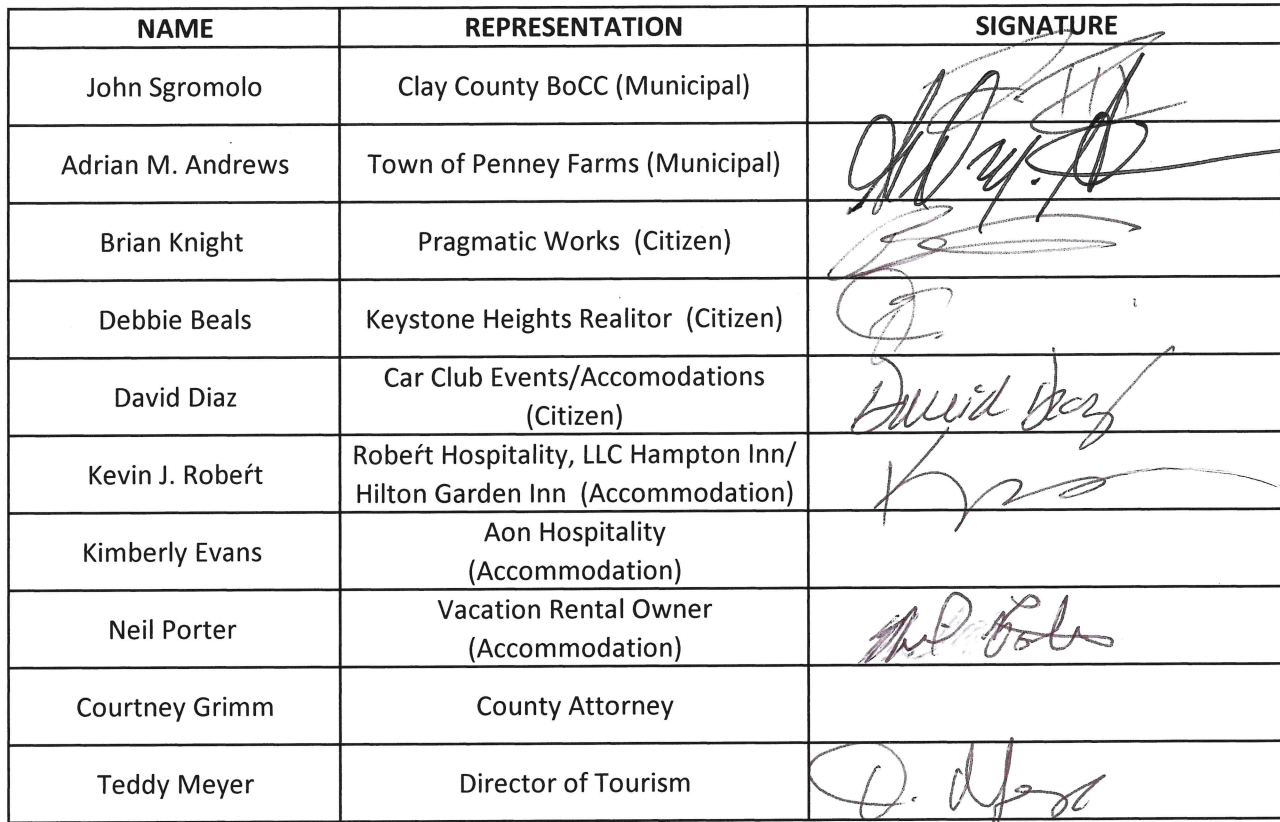 NAME REPRESENTATION SIGNATURE
John Sgromolo Clay County BoCC (Municipal)
Adrian M. Andrews Town of Penney Farms (Municipal)
Brian Knight Pragmatic Works (Citizen)
Debbie Beals Keystone Heights Realitor (Citizen)
David Diaz Car Club Events/Accomodations
(Citizen) David Diaz
Kevin J. Robeŕt Robeŕt Hospitality, LLC Hampton Inn/
Hilton Garden Inn (Accommodation)
Kimberly Evans Aon Hospitality
(Accommodation)
Neil Porter Vacation Rental Owner
(Accommodation)
Courtney Grimm County Attorney
Teddy Meyer Director of Tourism